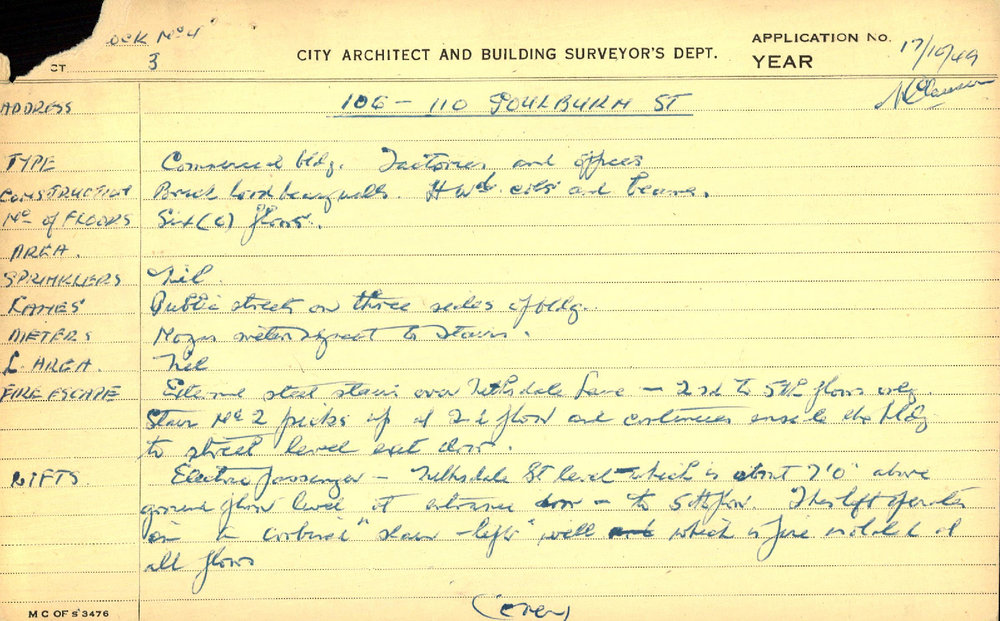 OCK No 4
CT 3
CITY ARCHITECT AND BUILDING SURVEYOR'S DEPT.
APPLICATION No.
YEAR
17/10/49
ADDRESS 106 - 110 GOULBURN ST
TYPE Commercial bldg. Factories and offices
CONSTRUCTION Brick load bearing walls. HWd. cols and beams.
No of FLOORS Six (6) floors.
AREA.
SPRINKLERS Nil.
LANES Public street on three sides of bldg.
METERS adjacent to stairs.
L. AREA. Nil
FIRE ESCAPE External steel stairs over Nithsdale Lane - 2nd to 5th floors only
Stair No 2 picks up at 2nd floor and continues inside the bldg
to street level exit door.
LIFTS. Electric passenger - Nithsdale St level which is about 7'0" above
ground floor level at entrance door - to 5th floor. This lift operates
in a combined "stair - lift" well which is fire isolated at
all floors
(over)
M C OF S 3476